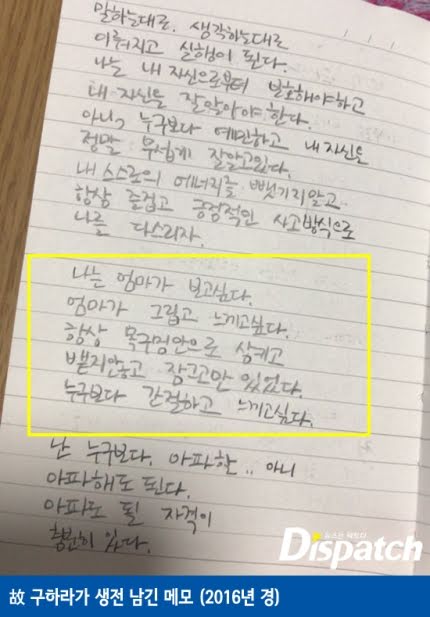 말하는대로. 생각하는대로
이뤄지고 실행이 된다.
나는 내 자신으로부터 보호해야하고
내 자신을 잘알아야한다.
아니, 누구보다 예민하고 내자신을
정말 무섭게 잘알고있다.
내 스스로의 에너지를 뺏기지않고
항상 즐겁고 긍정적인 사고방식으로
나를 다스리자.
나는 엄마가 보고싶다.
엄마가 그립고 느끼고싶다.
항상 목구멍안으로 삼키고
뱉지않고 잠그고만 있었다.
누구보다 간절하고 느끼고싶다.
난 누구보다. 아파할.. 아니
아파해도 된다.
아파도 될 자격이
충분히 있다.
Dispatch
故 구하라가 생전 남긴 메모 (2016년 경)